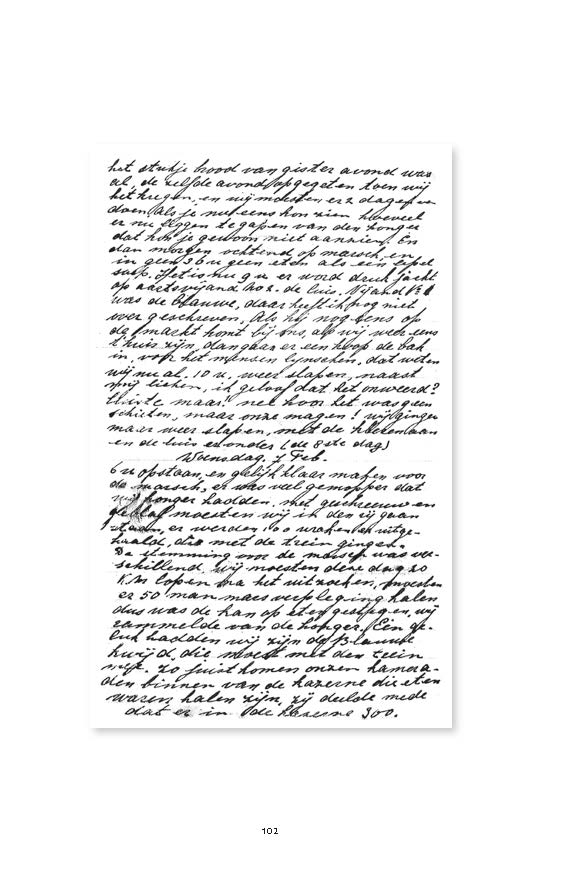 het stukje brood van gister avond was
al, de zelfde avond opgegeten toen wij
het kregen, en wij moesten er 2 dagen
doen. Als je nu eens kon zien hoeveel
er nu liggen te gapen van den honger
dat kon je gewoon niet aanzien. En
dan morgen ochtend op marsch, en
in geen 36 u geen eten als een lepel
soep. Het is nu 9 u er word druk jacht
op aartsvijand No 2. de luis. Vijand No 1
was de blauwe, daar heeft ik nog niet
over geschreven. Als hij nog eens op
de markt komt bij ons, als wij weer eens
t'huis zijn, dan gaan er een hoop de bak
in, voor het menschen lynschen, dat weten
wij nu al. 10 u. weer slapen, naast
mij lichen, ik geloof dat het onweerd?
luiste maar! nee hoor het was geen
schieten, maar onze magen! wij gingen
maar weer slapen, met de
en de luis eronder (de 8ste dag)
Woensdag, 7 Feb.
6 u opstaan, en gelijk klaar maken voor
de marsch, er was veel gemopper dat
wij honger hadden, met geschreeuw en
geblaf moesten wij ik den rij gaan
staan, er werden 100 uitge-
haald, die met de trein gingen.
De stemming om de marsch was ver-
schillend, wij moesten deze dag 20
K.M. lopen na het uitzoeken, moesten
er 50 man naes verpleging halen
dus was de kan op eten gestegen, wij
rammelde van de honger. Een ge-
luk hadden wij zijn de Blauwe
kwijd, die moest met den trein
mee. Zo juist komen onzen kamera-
den binnen van de kazerne die eten
waren halen zijn, zij deelde mede
dat er in de kazerne 300.
102